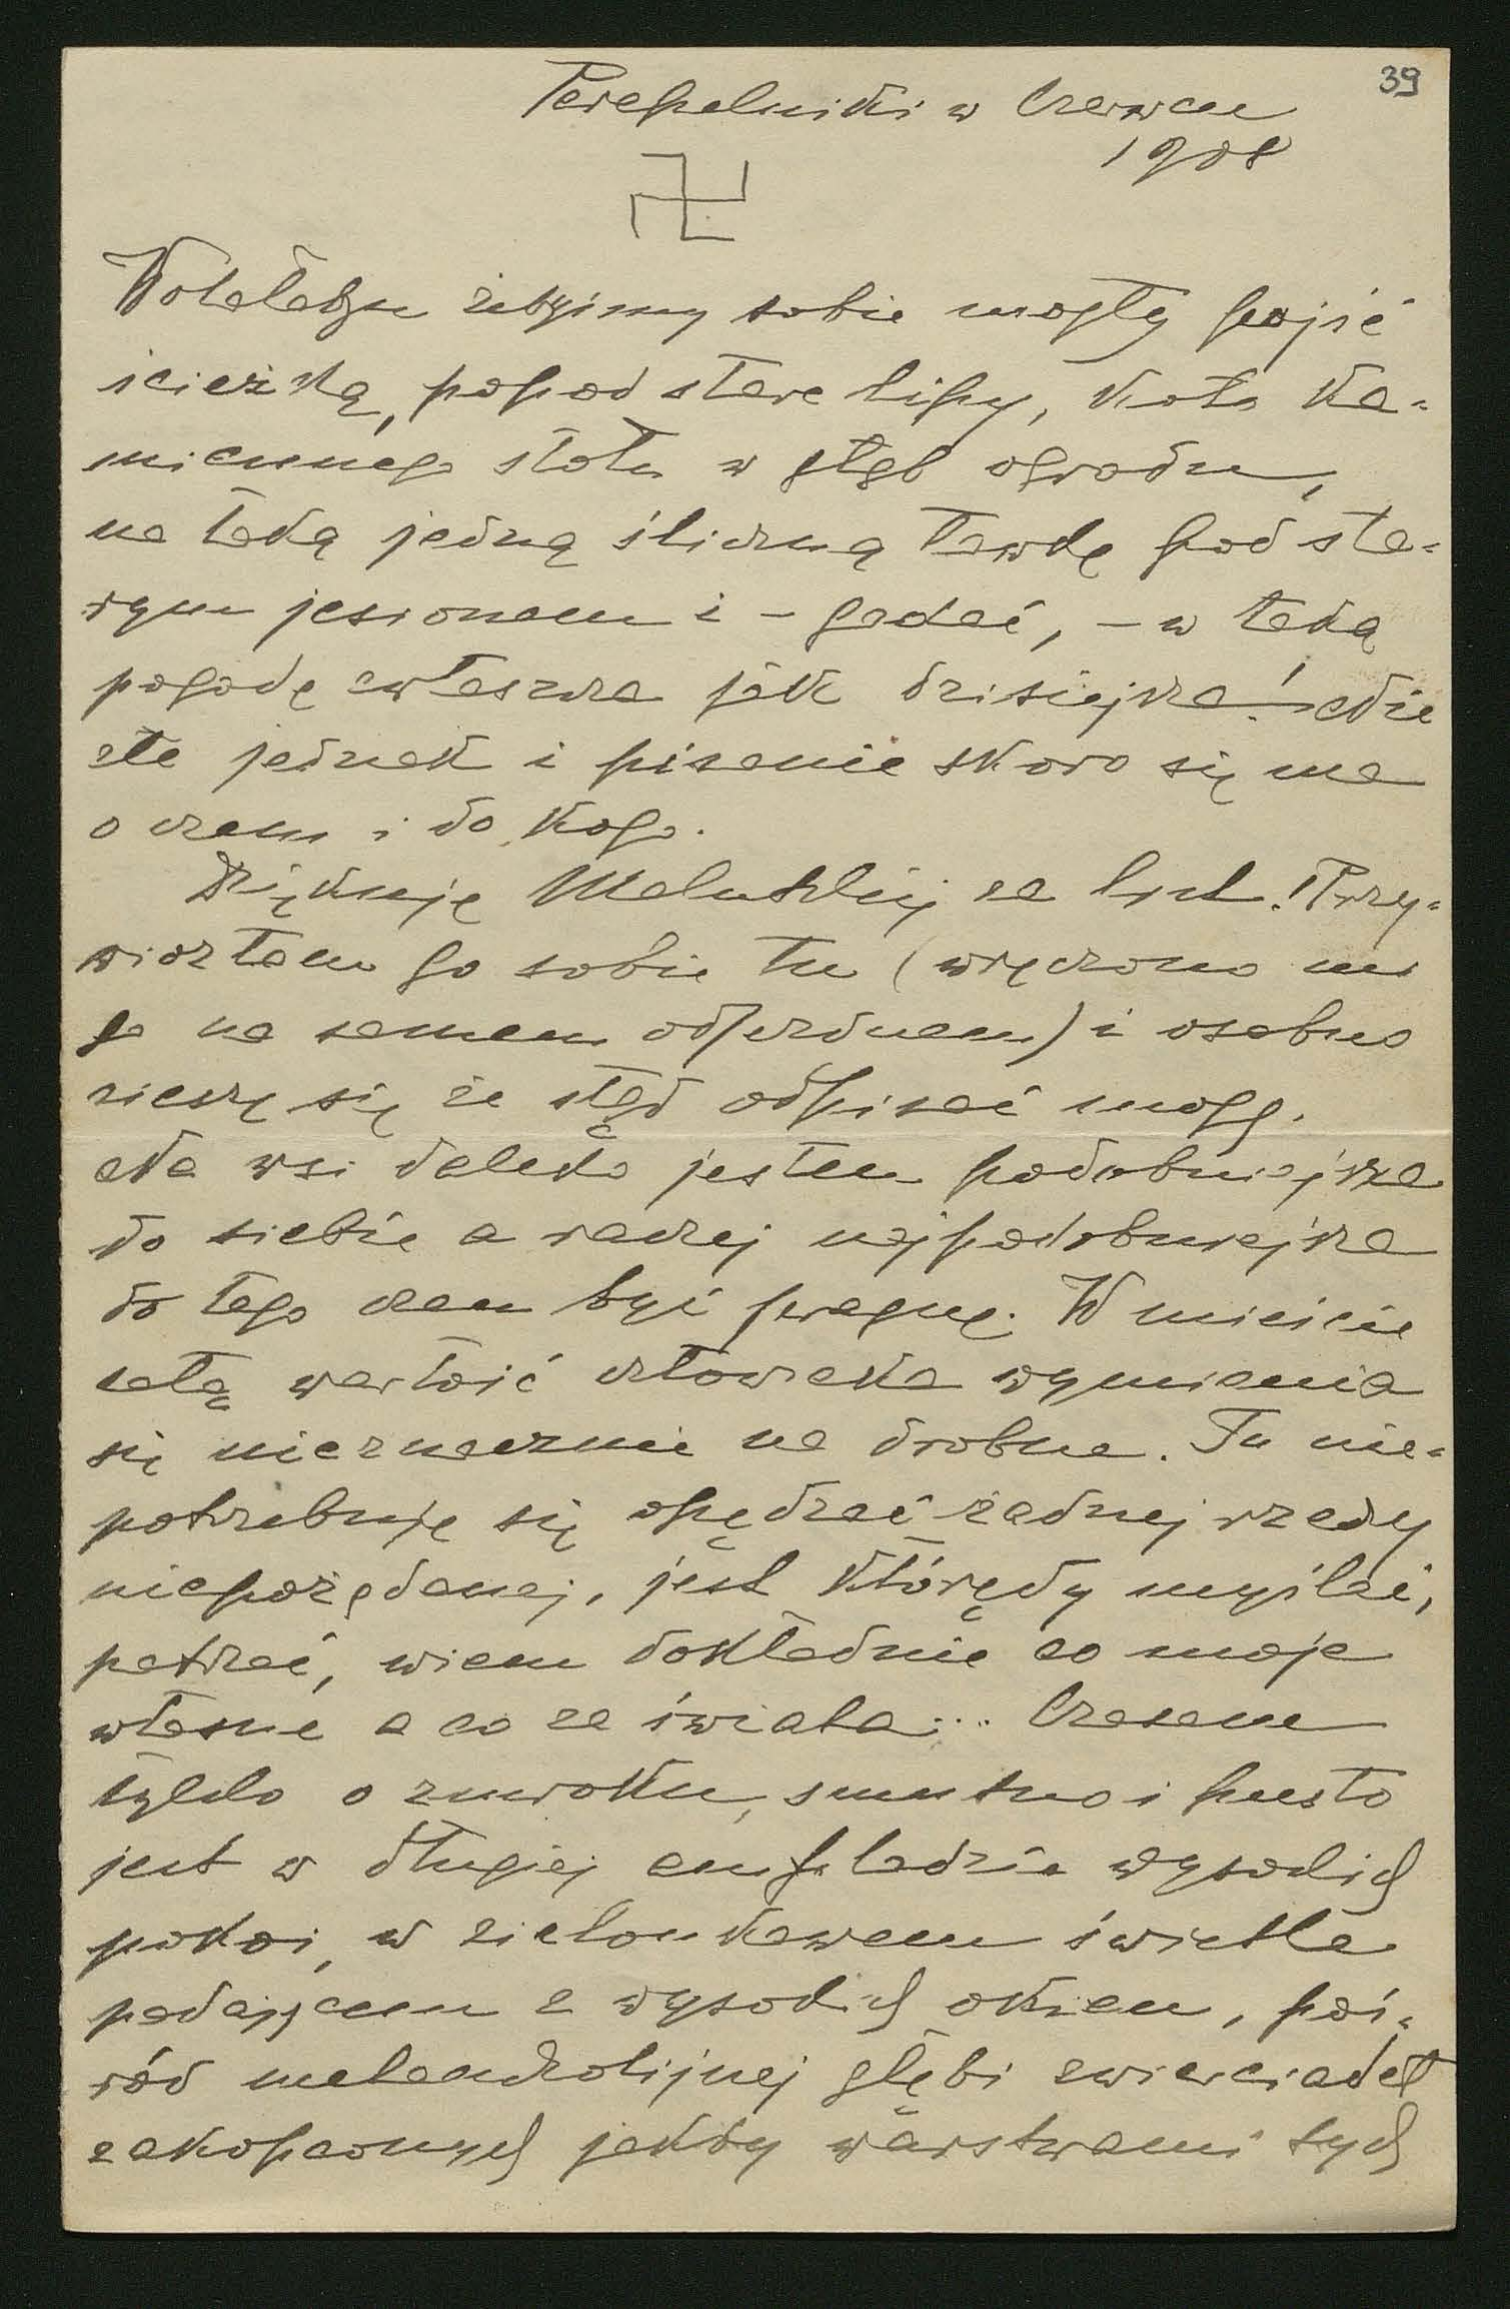 39
Perepelniki w Czerwcu
1908
Wolałabym żebyśmy sobie mogły pójść
ścieżką, popod stare lipy, koło ka-
miennego stołu w głąb ogrodu,
na taką jedną śliczną ławkę pod sta-
rym jesionem i – gadać, – w taką
pogodę zwłaszcza jak dzisiejsza! Nie
złe jednak i pisanie skoro się ma
o czem i do kogo.
Dziękuję Malutkiej za list. Przy-
wiozłam go sobie tu (wręczono mi
go na samem odjezdnem) i osobno
cieszę się że stąd odpisać mogę.
Na wsi daleko jestem podobniejsza
do siebie a raczej najpodobniejsza
do tego czem być pragnę. W mieście
całą wartość człowieka wymienia
się nieznacznie na drobne. Tu nie-
potrzebuję się opędzać żadnej rzeczy
niepożądanej, jest którędy myśleć,
patrzeć, wiem dokładnie co moje
własne a co ze świata... Czasem
tylko o zmroku, smutno i pusto
jest w długiej amfiladzie wysokich
pokoi, w zielonkawem świetle
padającem z wysokich okien, poś-
ród melancholijnej głębi zwierciadeł
zakopconych jakby warstwami tych